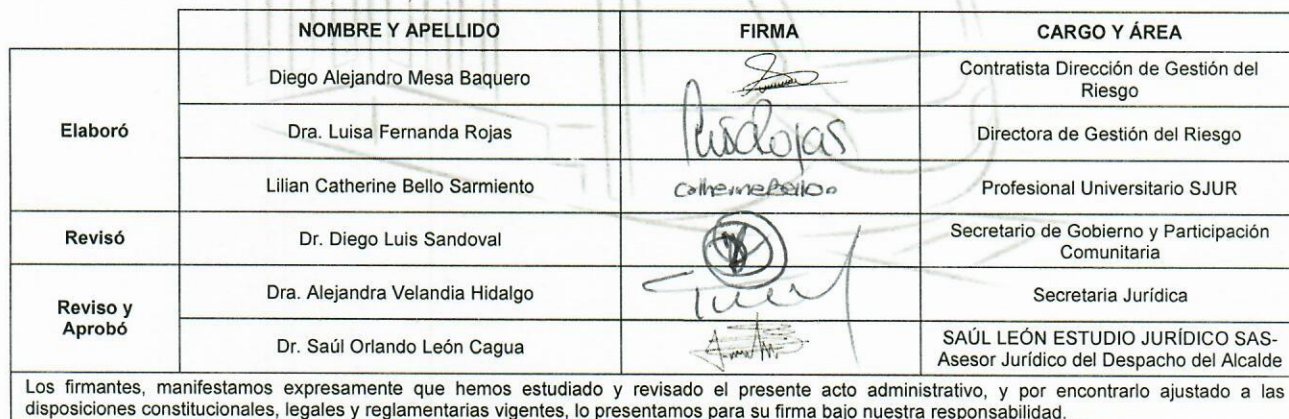 NOMBRE Y APELLIDO FIRMA CARGO Y ÁREA
Elaboró
Diego Alejandro Mesa Baquero
Contratista Dirección de Gestión del
Riesgo
Dra. Luisa Fernanda Rojas
LuisaRojas
Directora de Gestión del Riesgo
Lilian Catherine Bello Sarmiento
Profesional Universitario SJUR
Revisó
Dr. Diego Luis Sandoval
Secretario de Gobierno y Participación
Comunitaria
Reviso y
Aprobó
Dra. Alejandra Velandia Hidalgo
Secretaria Jurídica
Dr. Saúl Orlando León Cagua
SAÚL LEÓN ESTUDIO JURÍDICO SAS-
Asesor Jurídico del Despacho del Alcalde
Los firmantes, manifestamos expresamente que hemos estudiado y revisado el presente acto administrativo, y por encontrarlo ajustado a las
disposiciones constitucionales, legales y reglamentarias vigentes, lo presentamos para su firma bajo nuestra responsabilidad.